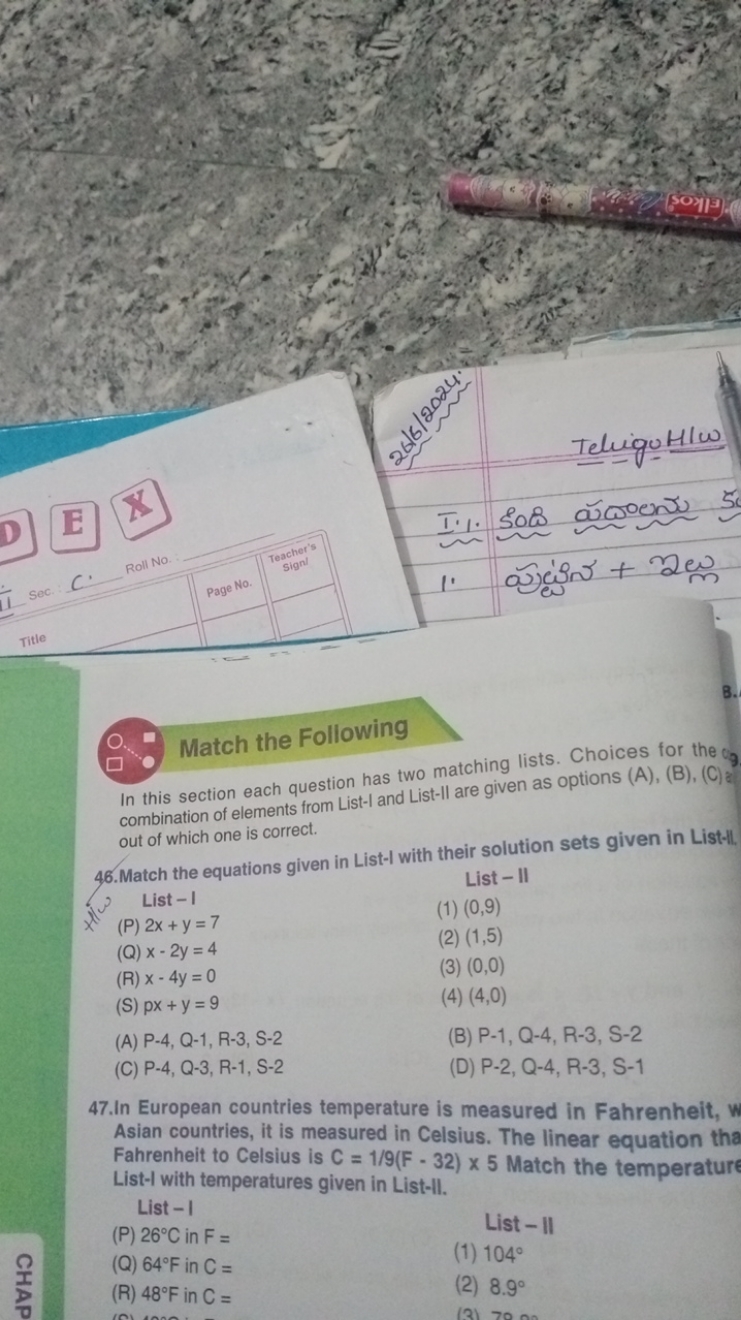 Elkos
26/6/2024.
Telugu H/w
I.1.
1.
D E X
Sec. : C. Roll No.
Page No.
Teacher's
Sign/
Title
B.
Match the Following
In this section each question has two matching lists. Choices for the
combination of elements from List-I and List-II are given as options (A), (B), (C)
out of which one is correct.
46.Match the equations given in List-I with their solution sets given in List-II.
H/w
List – I List – II
(P) 2x + y = 7 (1) (0,9)
(Q) x - 2y = 4 (2) (1,5)
(R) x - 4y = 0 (3) (0,0)
(S) px + y = 9 (4) (4,0)
(A) P-4, Q-1, R-3, S-2 (B) P-1, Q-4, R-3, S-2
(C) P-4, Q-3, R-1, S-2 (D) P-2, Q-4, R-3, S-1
47.In European countries temperature is measured in Fahrenheit,
Asian countries, it is measured in Celsius. The linear equation
Fahrenheit to Celsius is C = 1/9(F - 32) x 5 Match the temperature
List-I with temperatures given in List-II.
List – I List – II
(P) 26°C in F = (1) 104°
(Q) 64°F in C = (2) 8.9°
(R) 48°F in C =
(3)
CHAP